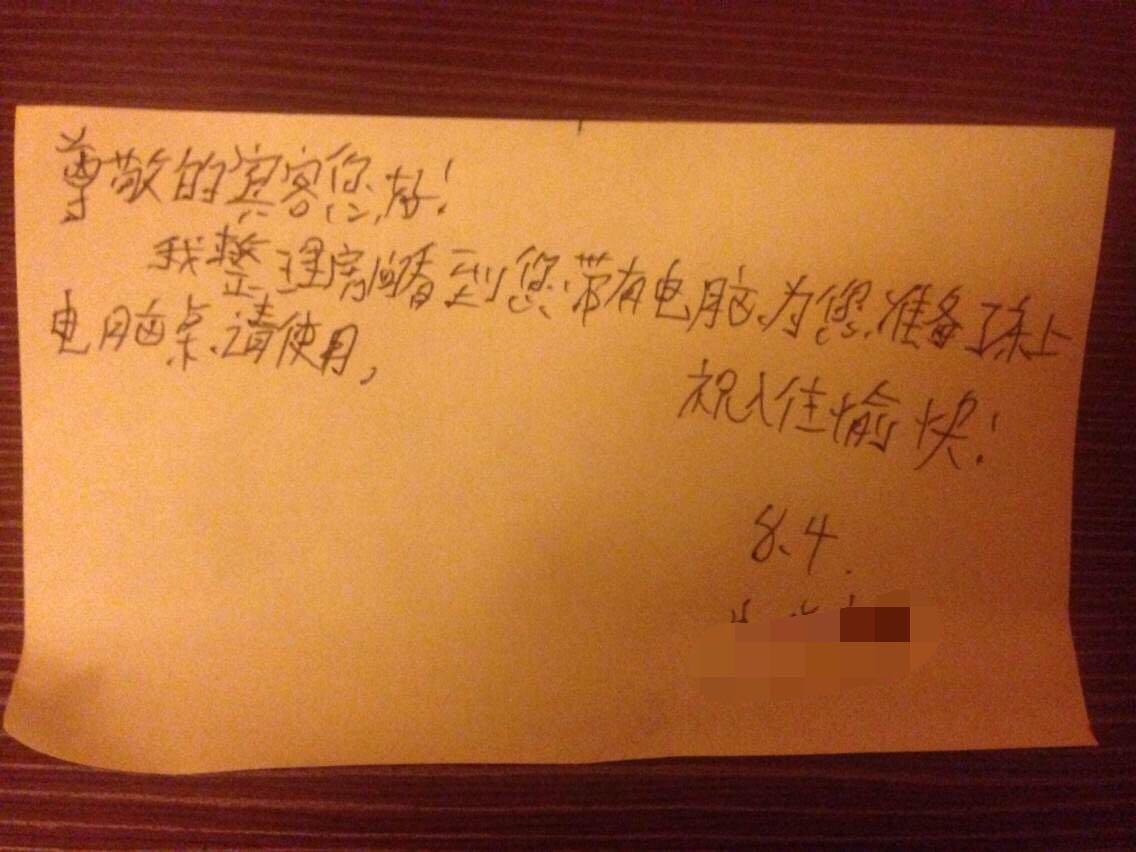 尊敬的宾客您好!
我整理房间看到您带有电脑,为您准备了床上
电脑桌、请使用,
祝入住愉快!
8.4.